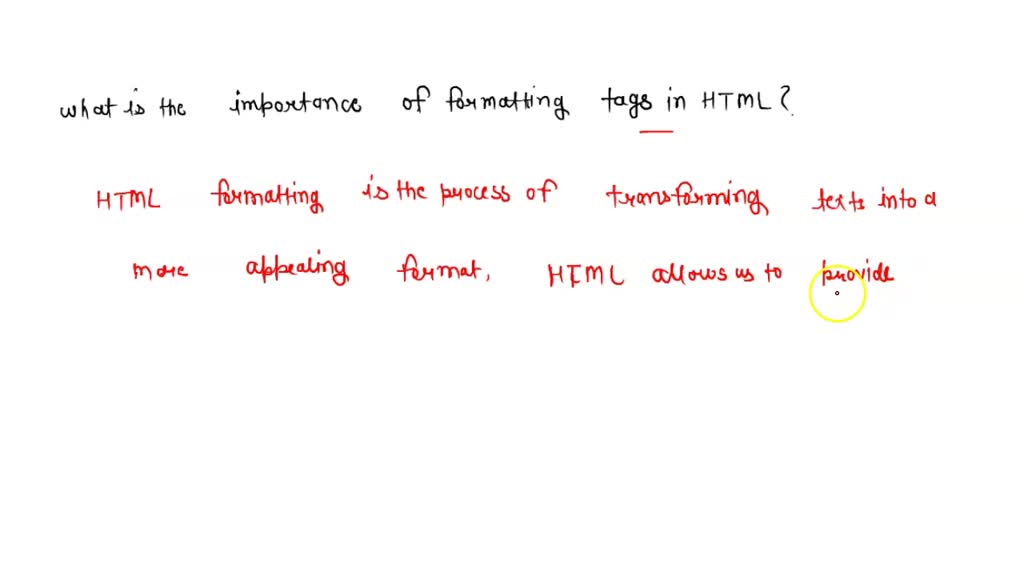 what is the importance of formatting tags in HTML?
HTML formatting is the process of transforming texts into a
more appealing format, HTML allows us to provide